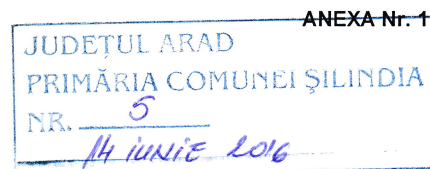 ANEXA Nr. 1
JUDEȚUL ARAD
PRIMĂRIA COMUNEI ȘILINDIA
NR. 5
14 iunie 2016